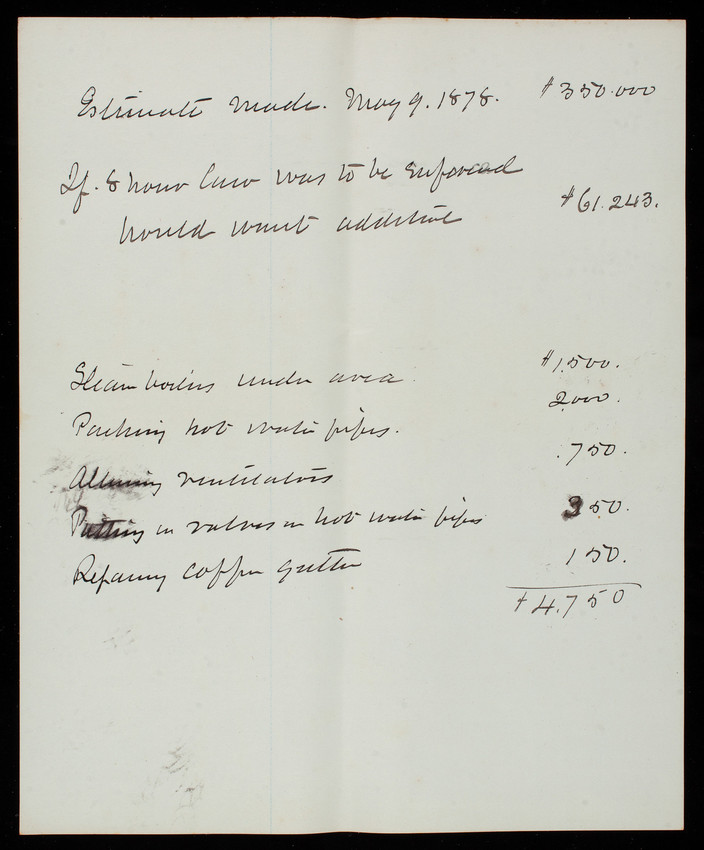 Estimate made. May 9. 1878. $350.000
If. 8 hour law was to be enforced
would want additive $61.243.
Steam boilers under area. $1.500.
Packing hot water pipes. 2.000.
Altering ventilators .750.
Putting in valves in hot water pipes 350.
Repairing copper gutter 150.
$4.750